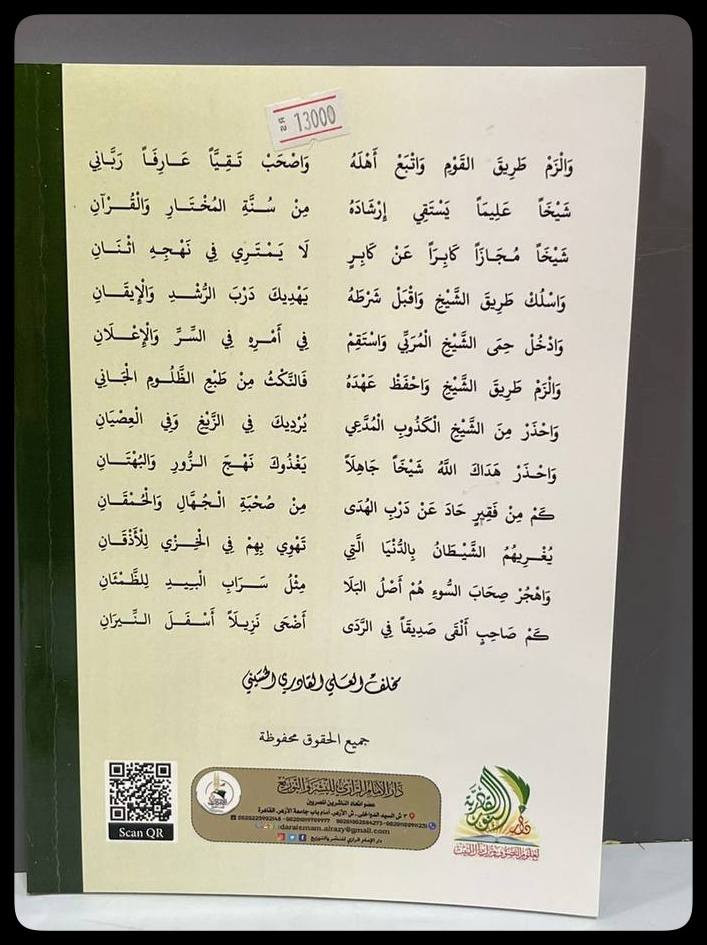 13000
وَالْزَمْ طَرِيقَ القَوْمِ وَاتْبَعْ أَهْلَهُ وَاصْحَبْ تَقِيَّاً عَارِفَاً رَبَّانِي
شَيْخَاً عَلِيمَاً يَسْتَقِي إِرْشَادَهُ مِنْ سُنَّةِ المُخْتَارِ وَالْقُرْآنِ
شَيْخَاً مُجَازَاً كَابِرَاً عَنْ كَابِرٍ لَا يَمْتَرِي فِي نَهْجِهِ اثْنَانِ
وَاسْلُكْ طَرِيقَ الشَّيْخِ وَاقْبَلْ شَرْطَهُ يَهْدِيكَ دَرْبَ الرُّشْدِ وَالْإِيقَانِ
وَادْخُلْ حِمَى الشَّيْخِ الْمُرَبِّي وَاسْتَقِمْ فِي أَمْرِهِ فِي السَّرِّ وَالْإِعْلَانِ
وَالْزَمْ طَرِيقَ الشَّيْخِ وَاحْفَظْ عَهْدَهُ فَالنَّكْثُ مِنْ طَبْعِ الظَّلُومِ الْجَانِي
وَاحْذَرْ مِنَ الشَّيْخِ الْكَذُوبِ الْمُدَّعِي يُرْدِيكَ فِي الزَّيْغِ وَفِي الْعِصْيَانِ
وَاحْذَرْ هَدَاكَ اللَّهُ شَيْخَاً جَاهِلَاً يَغْذُوكَ نَهْجَ الزُّورِ وَالبُهْتَانِ
كَمْ مِنْ فَقِيرٍ حَادَ عَنْ دَرْبِ الهُدَى مِنْ صُحْبَةِ الْجُهَّالِ وَالْحُمْقَانِ
يُغْرِيهُمُ الشَّيْطَانُ بِالدُّنْيَا الَّتِي تَهْوِي بِهِمْ فِي الْخِزْيِ لِلْأَذْقَانِ
وَاهْجُرْ صِحَابَ السُّوءِ هُمْ أَصْلُ البَلَا مِثْلُ سَرَابِ الْبِيدِ لِلظَّمْآنِ
كَمْ صَاحِبٍ أَلْقَى صَدِيقَاً فِي الرَّدَى أَضْحَى نَزِيلَاً أَسْفَلَ النِّيرَانِ
مخلف العلي القادري الحسيني
جميع الحقوق محفوظة
دار الإمام الرازي للنشر والتوزيع
عضو اتحاد الناشرين المصريين
daralemam.alrazy@gmail.com
دار الإمام الرازي للنشر والتوزيع
Scan QR
دار النور القادرية